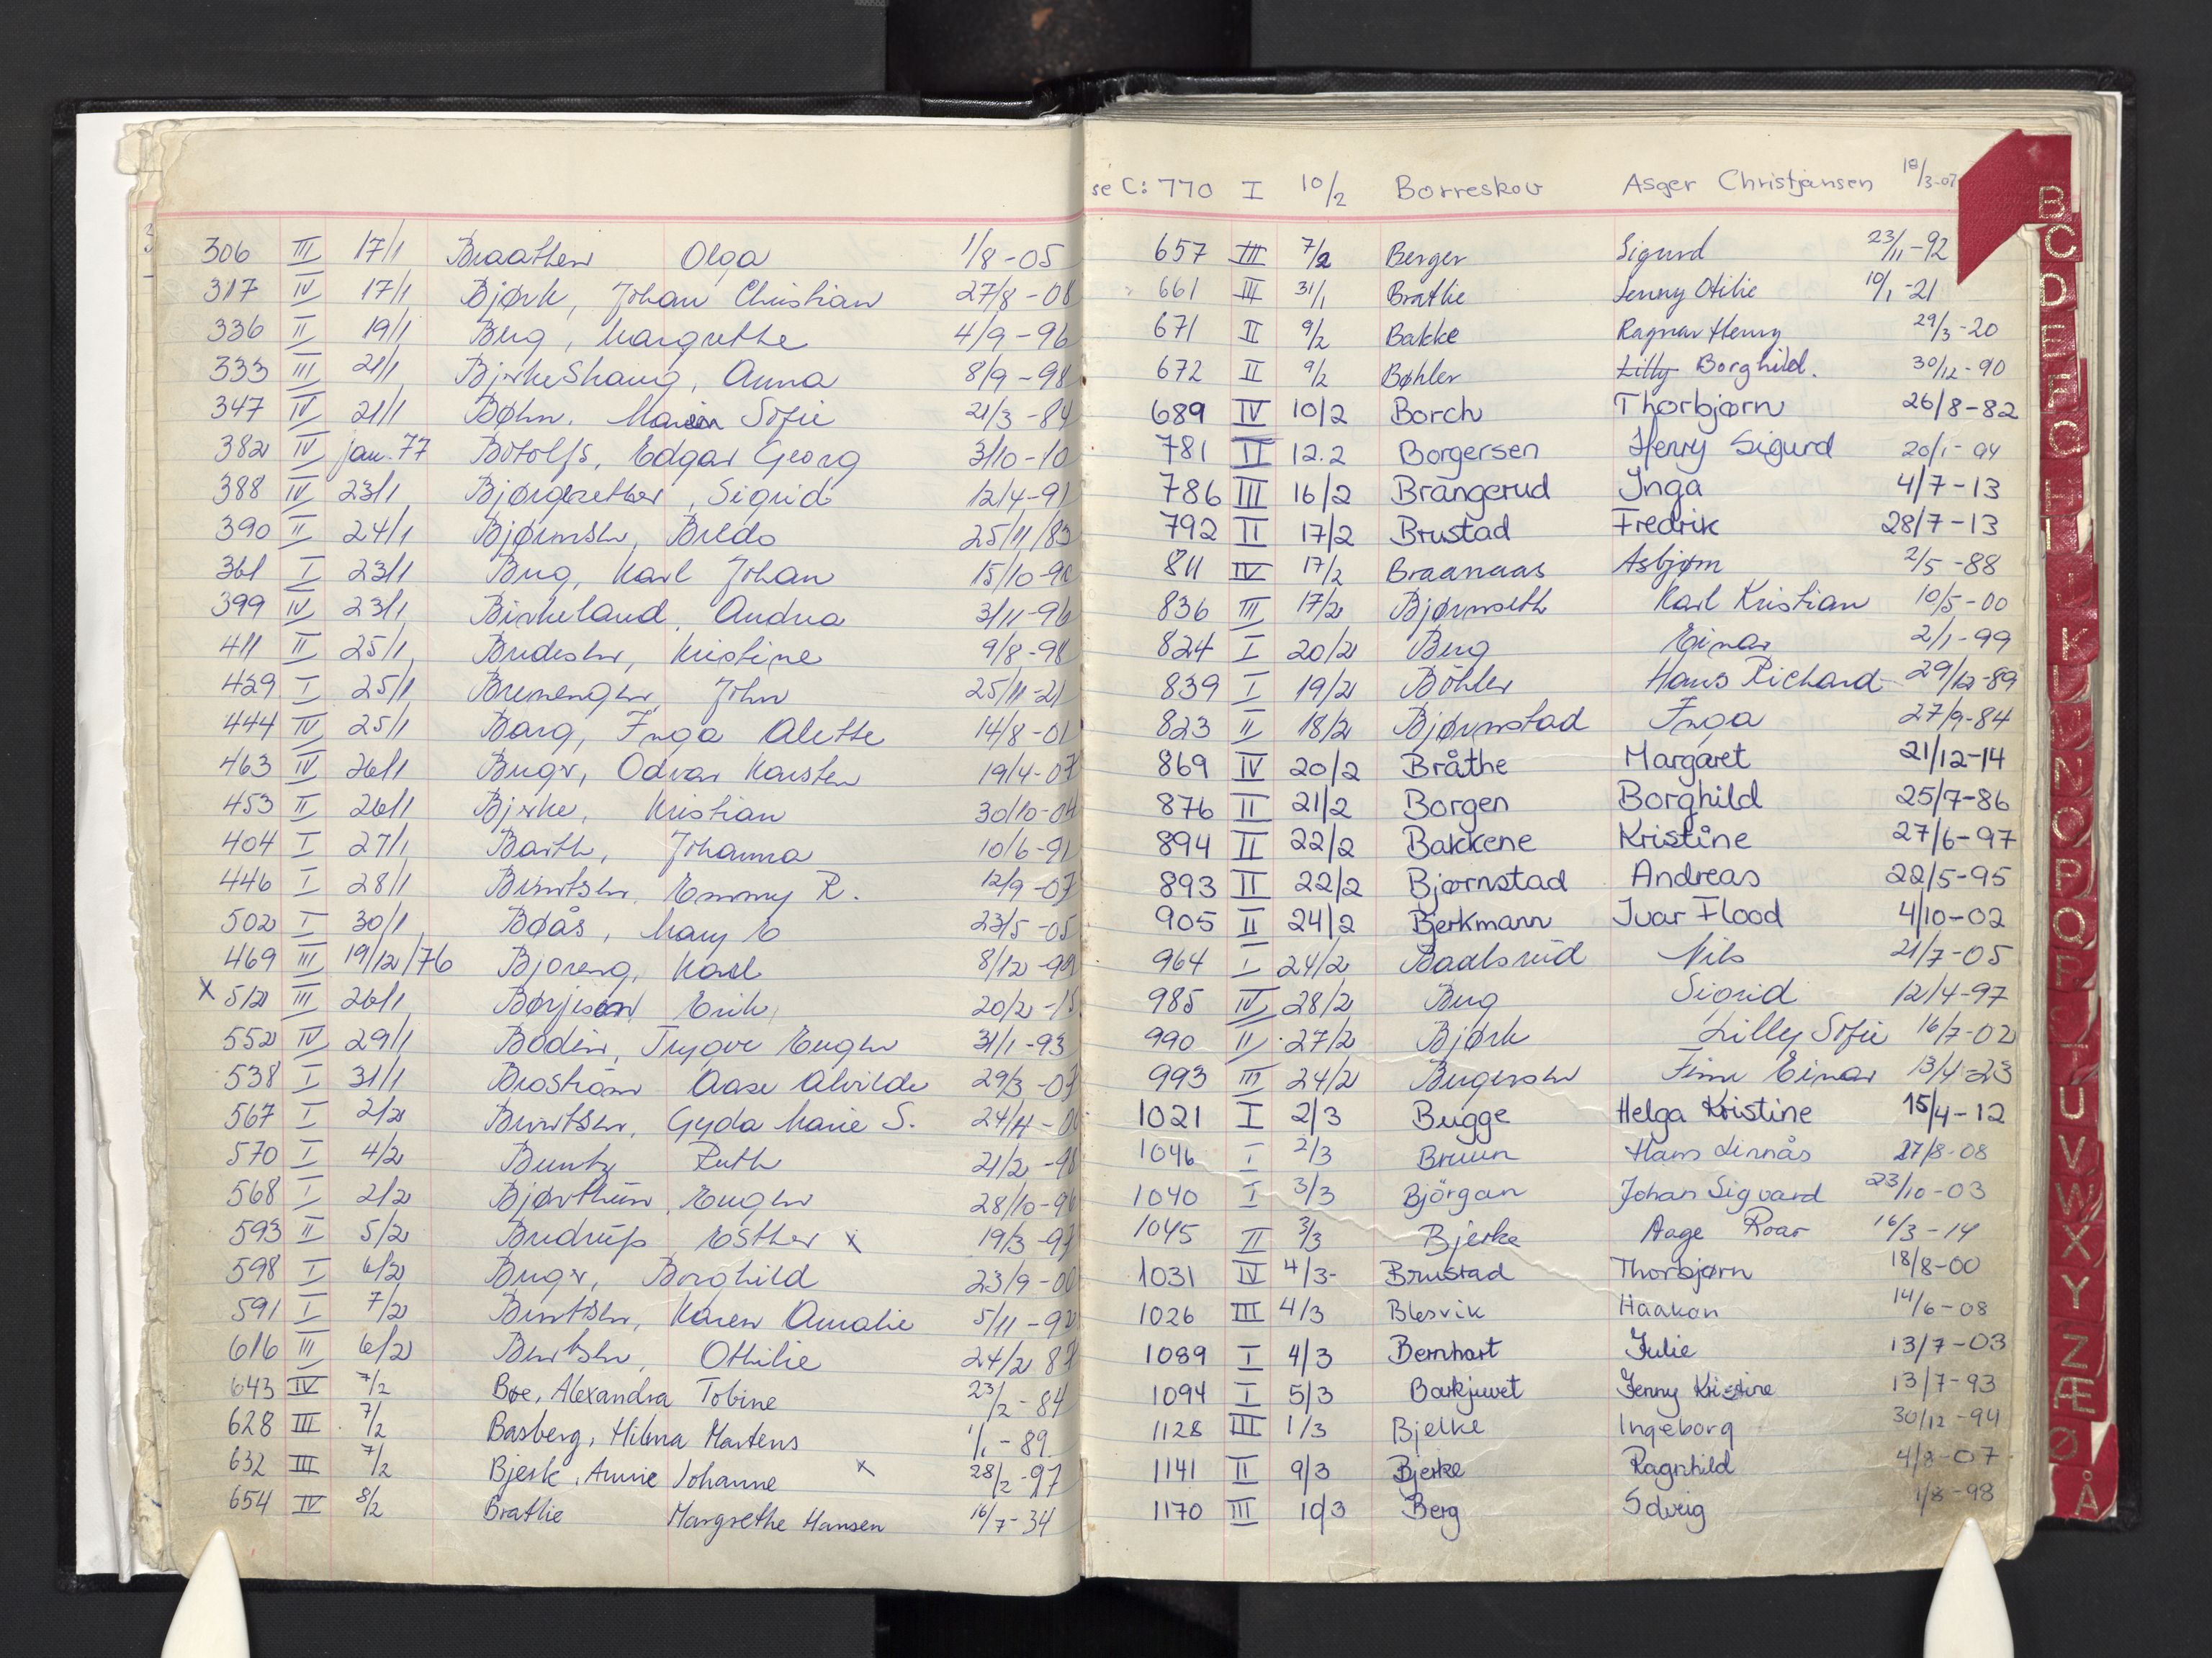 306 III 17/1 Braathen Olga 1/8-05
317 IV 17/1 Bjørk, Johan Christian 27/8-08
336 II 19/1 Berg, Margrethe 4/9-96
333 III 21/1 Bjerkeshaug, Anna 8/9-98
347 IV 21/1 Bøhn, Sofie 21/3-84
382 IV jan.77 Botolfs, Edgar Georg 3/10-10
388 IV 23/1 Sigrid 12/4-91
390 II 24/1 Bjørnsen, Bredo 25/11/83
361 I 23/1 Berg, Karl Johan 15/10-
399 IV 23/1 Birkeland, Andrea 3/11-96
411 II 25/1 Bredesen, Kristine 9/8-98
429 I 25/1 John 25/11-21
444 IV 25/1 Barg, Inga Alette 14/8-01
463 IV 26/1 Berger, Odvar Karsten 19/4-07
453 II 26/1 Bjerke, Kristian 30/10-04
404 I 27/1 Barth, Johanna 10/6-91
446 I 28/1 Berntsen, Emmy R. 12/9-07
502 I 30/1 Bøås, Mary E 23/5-05
469 III 19/12/76 Bjoreng, Karl 8/12-
x 512 III 26/1 Børjeson Erik 20/2-15
552 IV 29/1 Bodin, Trygve Eugen 31/1-93
538 I 31/1 Broström Aase Alvilde 29/3-03
567 I 2/2 Berntsen, Gyda Marie S. 24/11-00
570 I 4/2 Buntz Ruth 21/2-98
568 I 2/2 Bjørthun, Eugen 28/10-96
593 II 5/2 Bredrup Esther x 19/3-97
598 I 6/2 Berger, Borghild 23/9-00
591 I 7/2 Berntsen, Karen Amalie 5/11-92
616 III 6/2 Berntsen, Othilie 24/2 87
643 IV 7/2 Boe, Alexandra Tobine 23/2-84
628 III 7/2 Basberg, Hilma Martens 1/1-89
632 III 7/2 Bjerk, Annie Johanne x 28/2-97
654 IV 8/2 Bratlie Margrethe Hansen 16/7-34
se C: 770 I 10/2 Borreskov Asger Christjansen 18/3-07
657 III 7/2 Berger Sigurd 23/11-92
661 III 31/1 Bratlie Jenny Otilie 10/1-21
671 II 9/2 Bakke Ragnar Henry 29/3-20
672 II 9/2 Bøhler Lilly Borghild. 30/12-90
689 IV 10/2 Borch Thorbjørn 26/8-82
781 II 12.2 Borgersen Henry Sigurd 20/1-94
786 III 16/2 Brangerud Inga 4/7-13
792 II 17/2 Brustad Fredrik 28/7-13
811 IV 17/2 Braanaas Asbjørn 2/5-88
836 III 17/2 Bjørnseth Karl Kristian 10/5-00
824 I 20/2 Berg Einar 2/1-99
839 I 19/2 Böhler Hans Richard 29/12-89
823 II 18/2 Bjørnstad Inga 27/9-84
869 IV 20/2 Bråthe Margaret 21/12-14
876 II 21/2 Borgen Borghild 25/7-86
894 II 22/2 Bakkene Kristine 27/6-97
893 II 22/2 Bjørnstad Andreas 22/5-95
905 II 24/2 Bjerkmann Ivar Flood 4/10-02
964 I 24/2 Baalsrud Nils 21/7-05
985 IV 28/2 Berg Sigrid 12/4-97
990 II 27/2 Bjørk Lilly Sofie 16/7-02
993 III 24/2 Bergersen Finn Einar 13/4-23
1021 I 2/3 Bugge Helga Kristine 15/4-12
1046 I 2/3 Bruun Hans Linnås 27/8-08
1040 I 3/3 Björgan Johan Sigvard 23/10-03
1045 II 3/3 Bjerke Aage Roar 16/3-14
1031 IV 4/3- Brustad Thorbjørn 18/8-00
1026 III 4/3 Blesvik Haakon 14/6-08
1089 I 4/3 Bernhart Julie 13/7-03
1094 I 5/3 Barkjuvet Jenny Kristine 13/7-93
1128 III 1/3 Bjelke Ingeborg 30/12-94
1141 II 9/3 Bjerke Ragnhild 4/8-07
1170 III 10/3 Berg Solveig 1/8-98
B
C
D
E
F
G
H
I
J
K
L
M
N
O
P
Q
R
S
T
U
V
W
X
Y
Z
Æ
Ø
Å